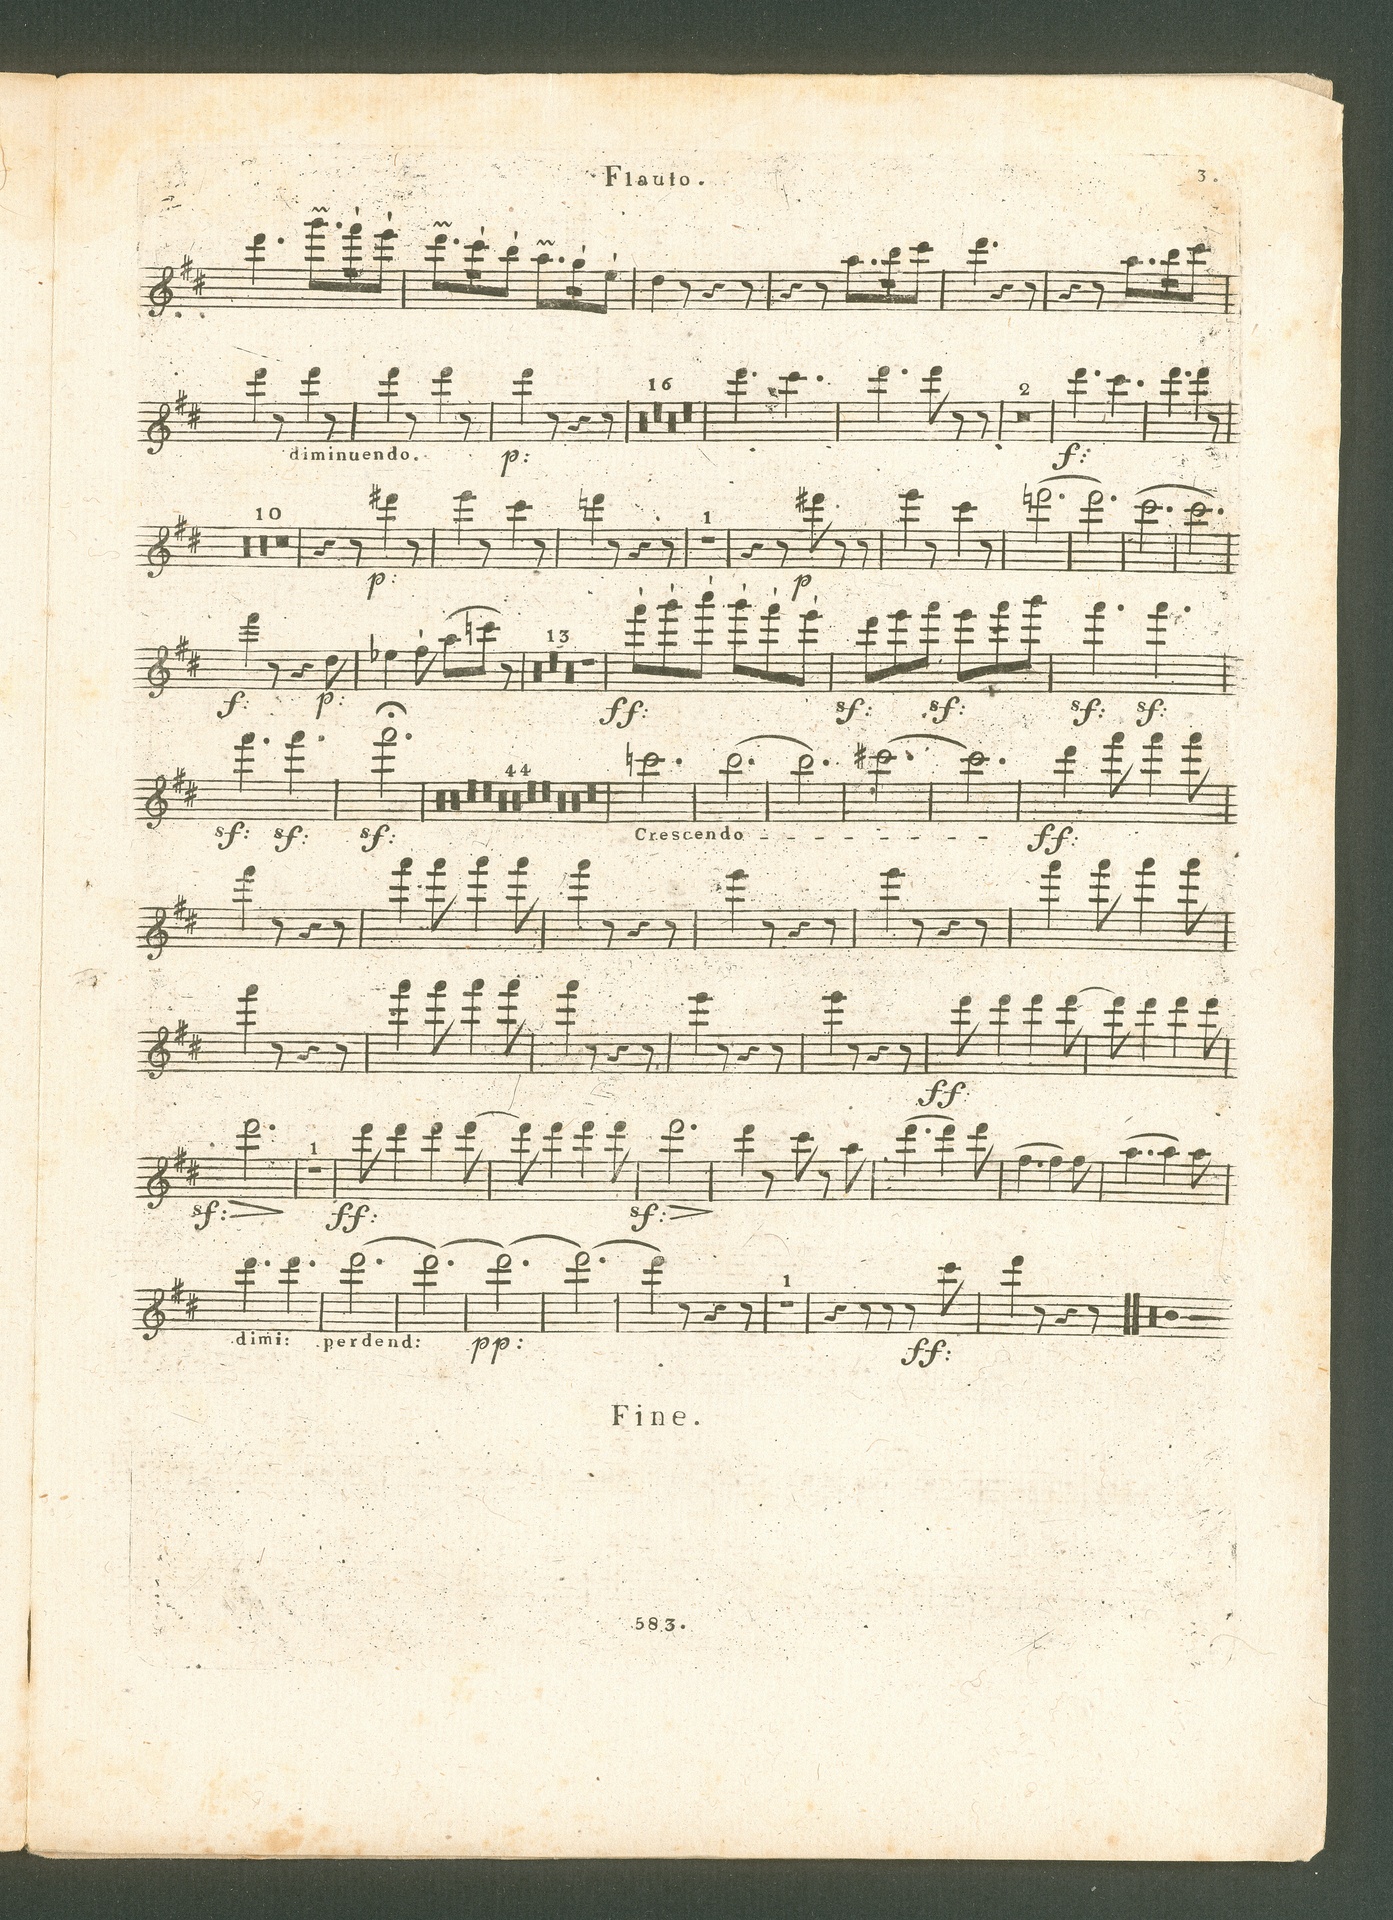 Flauto. 3.
16 2
diminuendo. p: f:
10 1
p: p
13
f: p: ff: sf: sf: sf: sf:
44
sf: sf: sf: Crescendo ff:
ff:
1
sf: ff: sf:
1
dimi: perdend: pp: ff:
Fine.
583.